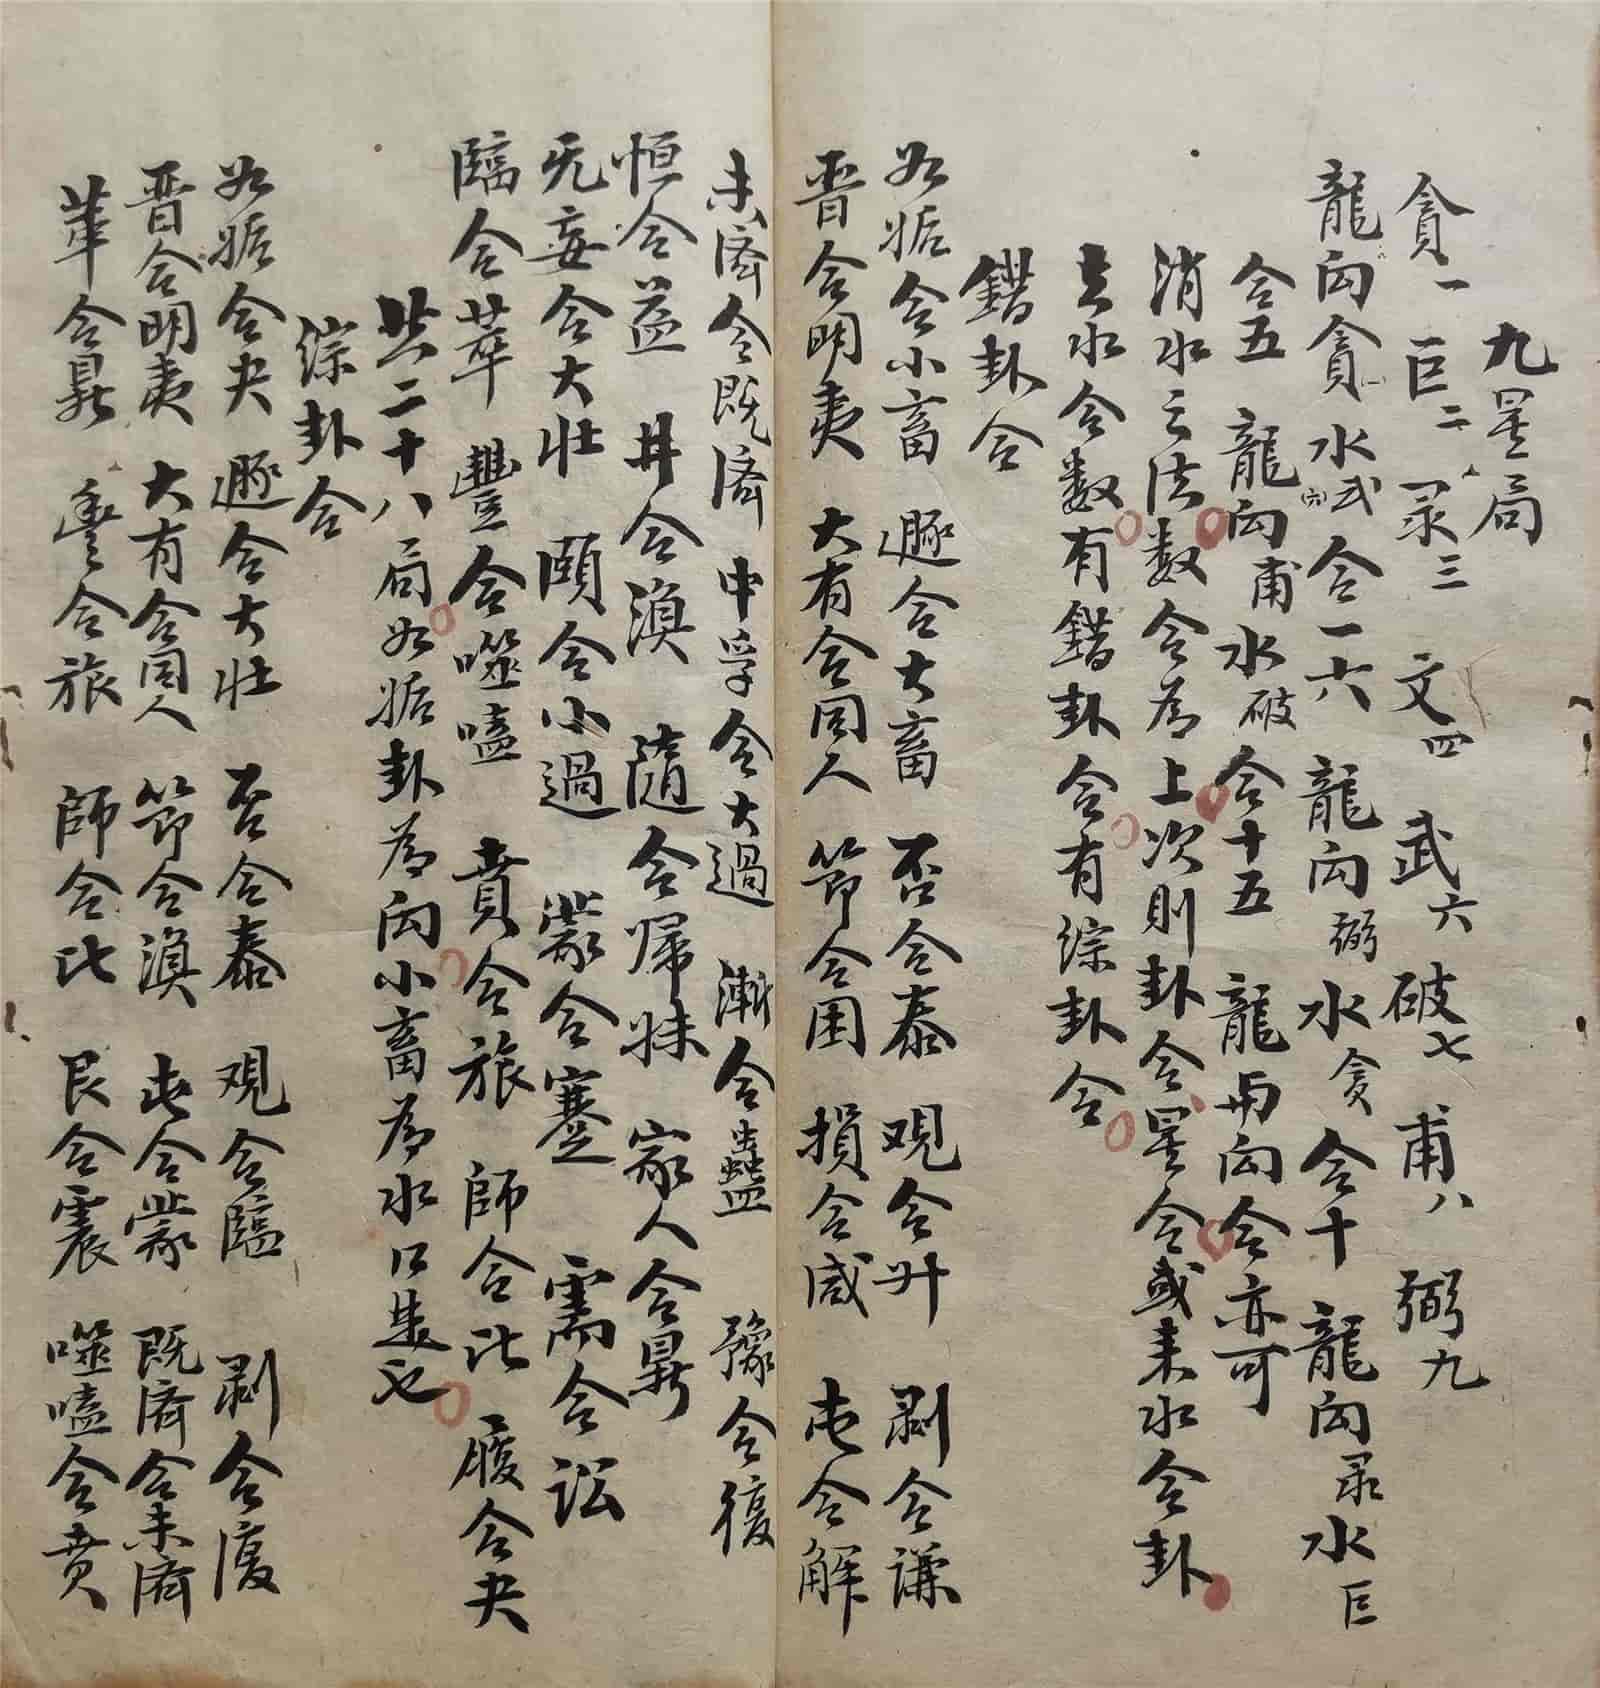 九星局
貪一 巨二 录三 文四 武六 破七 甫八 弼九
龍向貪一水武(六) 合一六 龍向弼水贪 合十 龍向录水巨
合五 龍向甫水破合十五 龍與向合亦可
消水之法数合为上次則卦合星合或来水合卦
去水合数有錯卦合有綜卦合
錯卦合
如姤合小畜 遯合大畜 否合泰 观合升 剥合谦
晋合明夷 大有合同人 節合困 損合咸 屯合解
未濟合既濟 中孚合大過 漸合蠱 豫合復
恒合益 井合渙 隨合帰妹 家人合鼎
旡妄合大壯 頤合小過 蒙合蹇 需合訟
臨合萃 豐合噬嗑 賁合旅 師合比 履合夬
共二十八局如姤卦为向小畜为水口是也
綜卦合
如姤合夬 遯合大壯 否合泰 观合臨 剥合復
晋合明夷 大有合同人 節合渙 屯合蒙 既濟合未濟
革合鼎 豊合旅 師合比 艮合震 噬嗑合賁